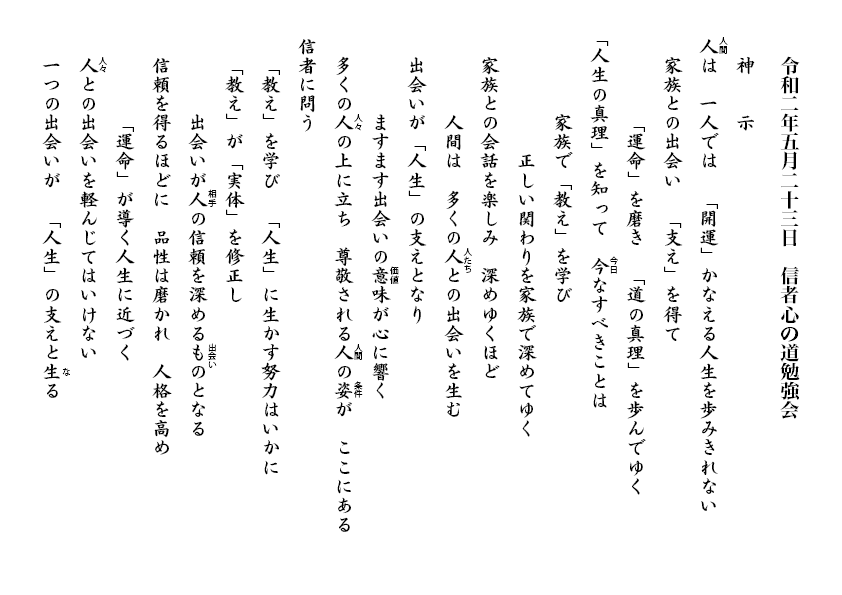 令和二年五月二十三日　信者心の道勉強会
神　示
人間
人は　一人では　「開運」かなえる人生を歩みきれない
家族との出会い　「支え」を得て
「運命」を磨き　「道の真理」を歩んでゆく
「人生の真理」を知って　今なすべきことは
今日
家族で「教え」を学び
正しい関わりを家族で深めてゆく
家族との会話を楽しみ　深めゆくほど
人間は　多くの人との出会いを生む
人たち
出会いが「人生」の支えとなり
ますます出会いの意味が心に響く
価値
多くの人の上に立ち　尊敬される人の姿が　ここにある
人々　人間　条件
信者に問う
「教え」を学び　「人生」に生かす努力はいかに
「教え」が「実体」を修正し
出会いが人の信頼を深めるものとなる
相手　出会い
信頼を得るほどに　品性は磨かれ　人格を高め
「運命」が導く人生に近づく
人との出会いを軽んじてはいけない
人々
一つの出会いが　「人生」の支えと生る
な